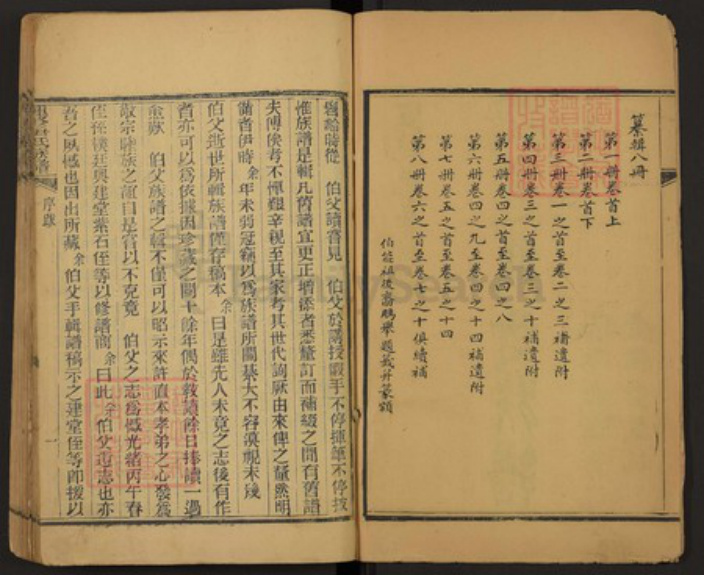 纂輯八冊
第一冊卷首上
第二冊卷首下
第三冊卷一之首至卷二之三補遺附
第四冊卷三之首至卷三之十補遺附
第五冊卷四之首至卷四之八
第六冊卷四之九至卷四之十四補遺附
第七冊卷五之首至卷五之十四
第八冊卷六之首至卷七之十俱續補
伯父讀書見 伯父於講授暇手不停揮筆不停披
惟族譜是輯凡舊譜宜更正增添者悉釐訂而補綴之間有舊譜
失傳俟考不憚艱辛親至其家考其世代詢厥由來俾之釐然明
備者伊時余年未弱冠竊以為族譜所關綦大不容漠視未幾
伯父逝世所輯族譜僅存稿本余曰是雖先人未竟之志後有作
者亦可以為依據因珍藏之閱十餘年偶於教讀餘日捧讀一過
僉歎 伯父族譜之輯不僅可以昭示來許直本孝弟之心發為
敬宗睦族之 自是 以不克竟 伯父之志為憾光緒丙午春
侄孫漢廷與建堂紫石侄等以修譜商余曰此余伯父遺志也亦
吾之夙憾也因出所藏余伯父手輯譜稿示之建堂侄等即援以
序
一